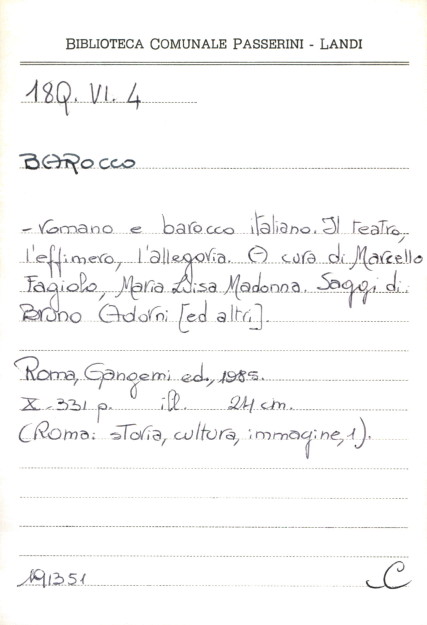 BIBLIOTECA COMUNALE PASSERINI - LANDI
18Q. VI. 4
BAROCCO
- romano e barocco italiano. Il teatro,
l'effimero, l'allegoria. A cura di Marcello
Fagiolo, Maria Luisa Madonna. Saggi di
Bruno Adorni [ed altri].
Roma, Gangemi ed., 1985.
X-331 p. ill. 24 cm.
(Roma: storia, cultura, immagine, 1).
191351 C